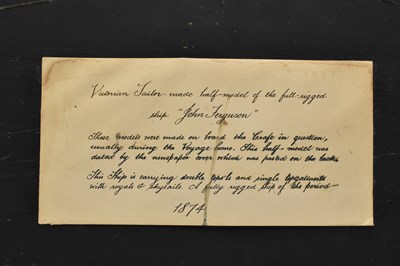 Victorian Sailor-made half-model of the full-rigged
ship "John Ferguson"
These models were made on board the Craft in question,
usually during the Voyage home. This half-model was
dated by the newspaper cover which was pasted on the back.
This Ship is carrying double topsls and single topgallants
with royals & skysails. A fully rigged ship of the period—
1874